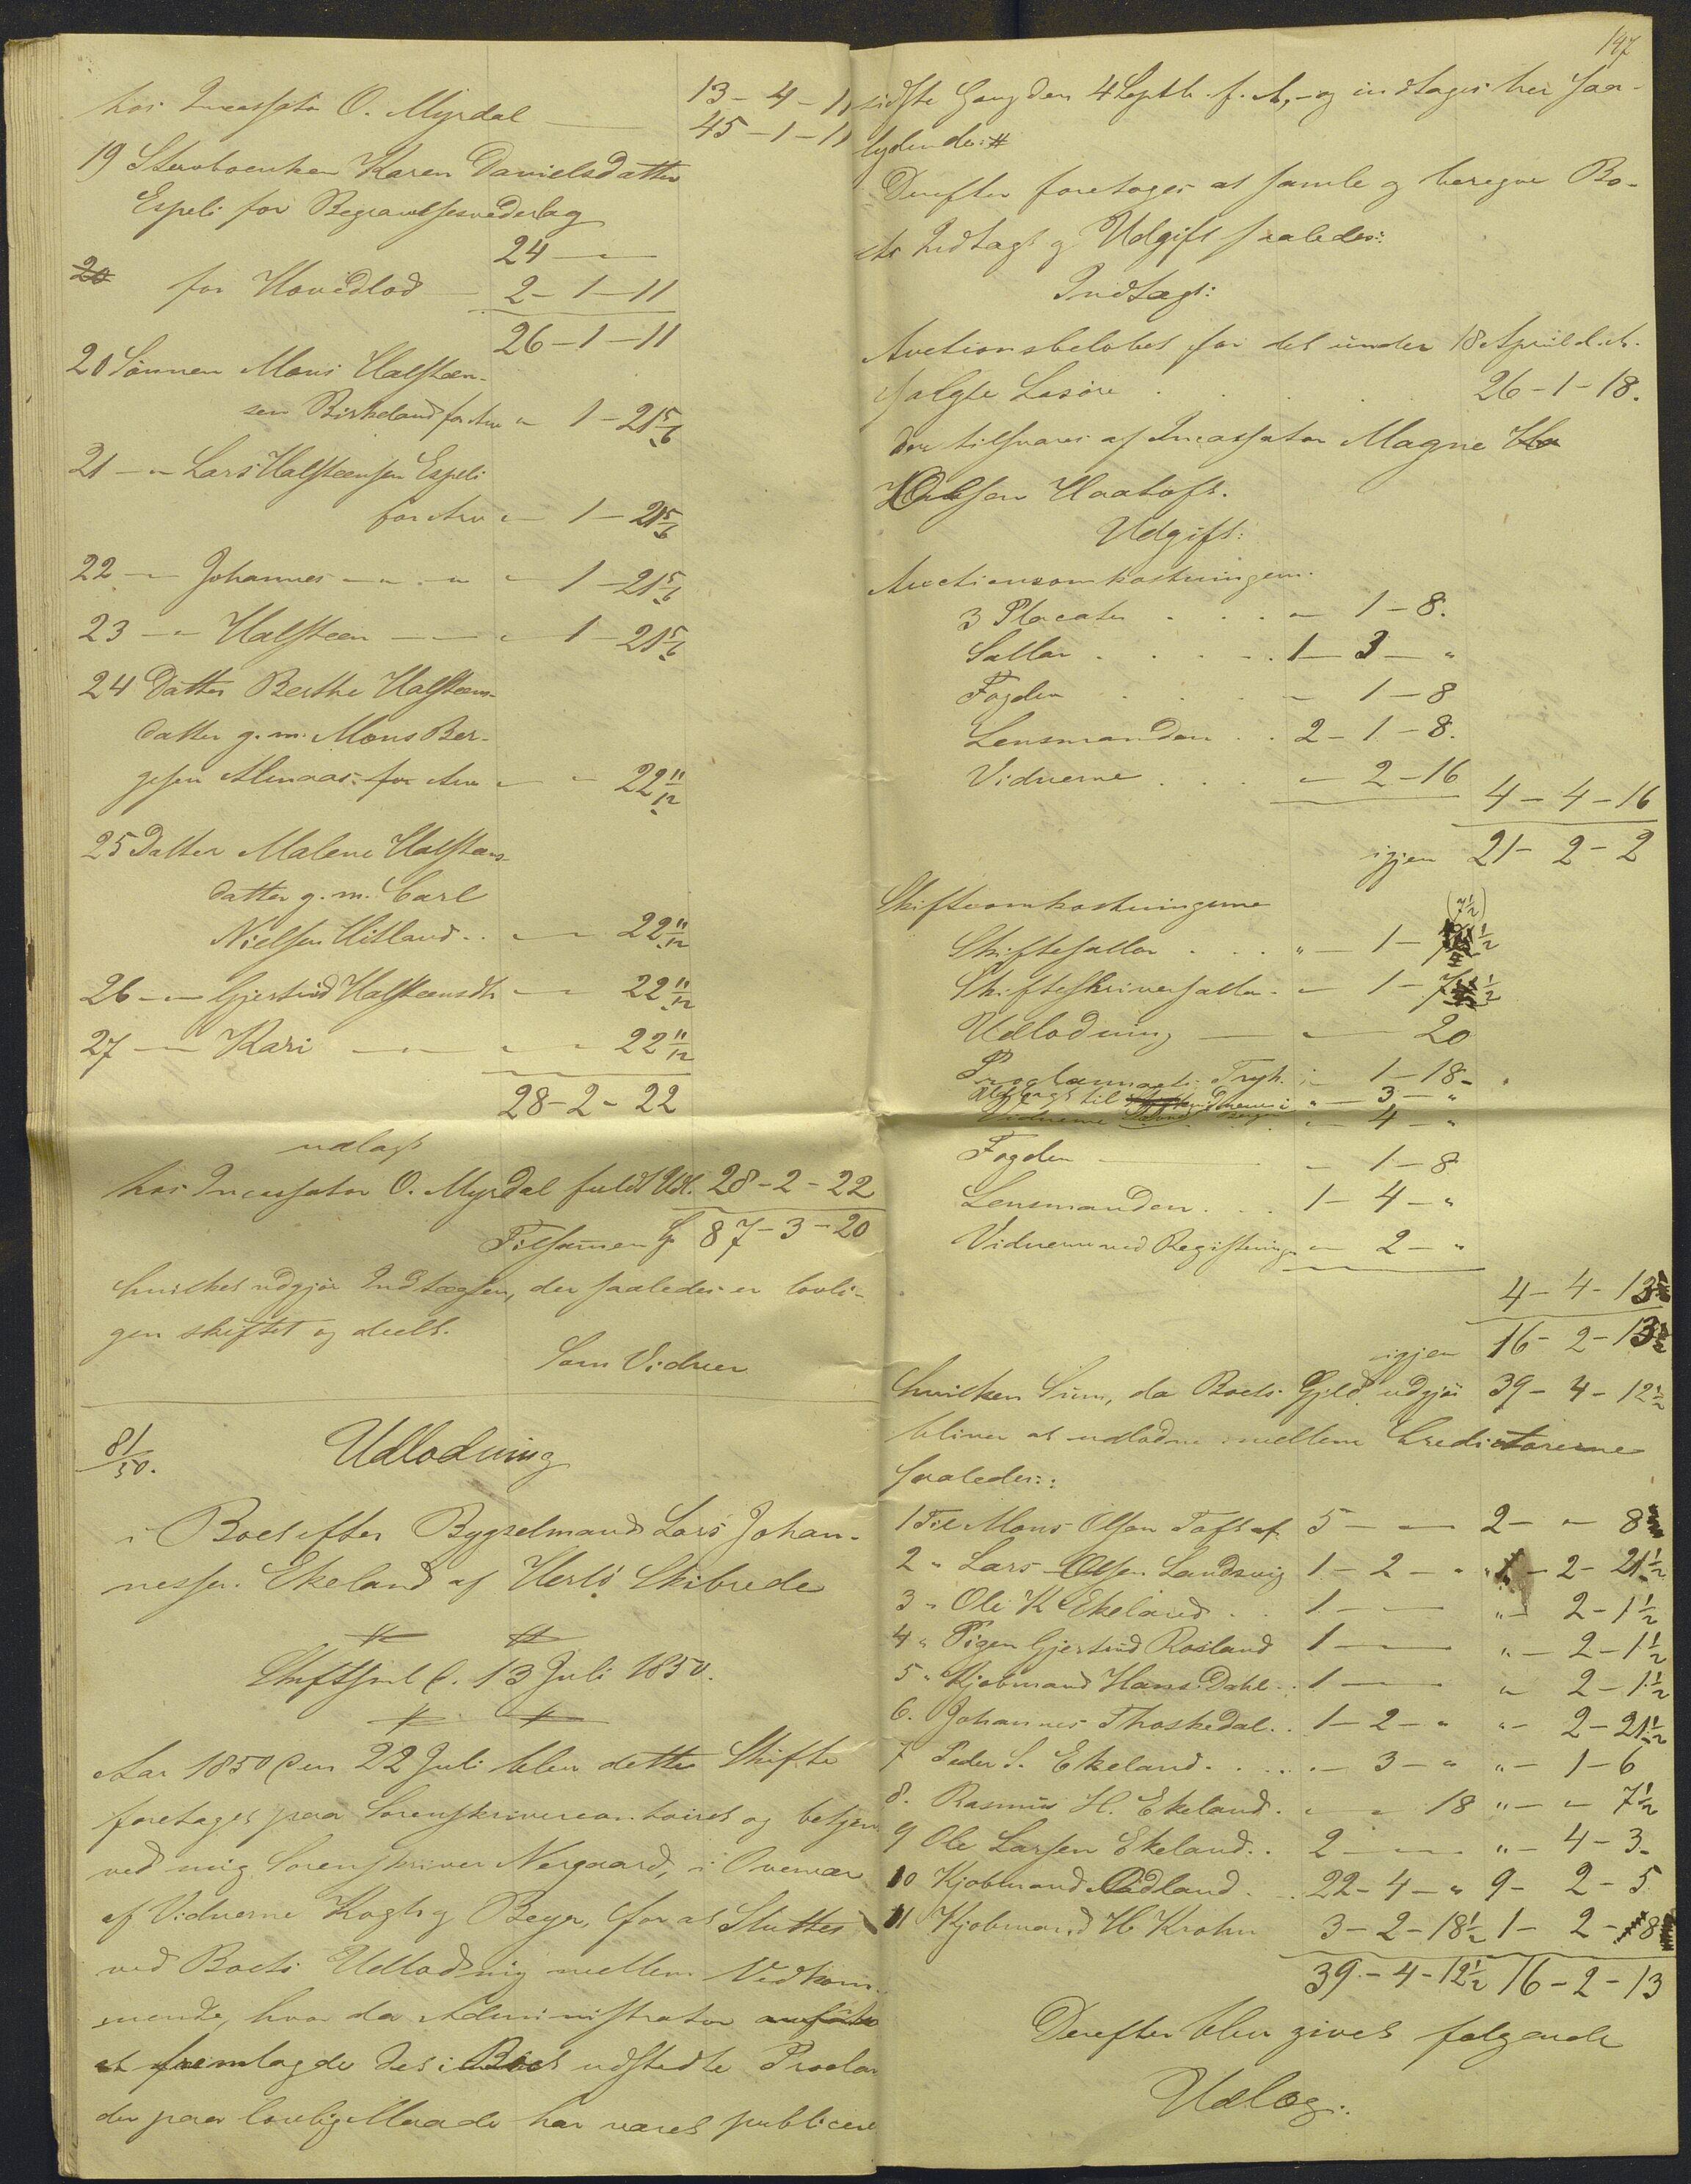 hos Incassator O. Myrdal — 13 - 4 - 11
45 - 1 - 11
19 Stervboenken Karen Danielsdatter
Espeli for Begravelsesvederlag
24 — "
20 for Hovedlod — 2 - 1 - 11
26 - 1 - 11
20 Sønnen Mons Halsteen-
sen Birkeland for Arv " 1 - 21 5/6
21 — " Lars Halsteensen Espeli
for Arv " — 1 - 21 5/6
22 — " Johannes — " — " " — 1 - 21 5/6
23 — " Halsteen — " — 1 - 21 5/6
24 Datter Berthe Halsteens-
datter g. m. Mons Ber-
gesen Almaas for Arv " — " 22 11/12
25 Datter Malene Halsteens-
datter g. m. Carl
Nielsen Hitland . . " — " 22 11/12
26 — " Gjertrud Halsteensdtr " — " 22 11/12
27 — " Kari — " — " — " 22 11/12
28 - 2 - 22
udlagt
hos Incassator O. Myrdal fuldt Udl. 28 - 2 - 22
Tilsamen 87 - 3 - 20
hvilket udgjør Indtægten, der saaledes er lovli-
gen skiftet og deelt.
Som Vidner
81/50. Udlodning
i Boet efter Bygselmand Lars Johan-
nessen Ekeland af Herlø Skibrede
Skiftsml d. 13 Juli 1850.
Aar 1850 den 22 Juli blev dette Skifte
foretaget paa Sorenskrivercontoiret og betjent
ved mig Sorenskriver Nergaard, i Overvær
af Vidnerne Kogh og Beyer, for at Sluttes
ved Boets Udlodning mellem Vedkom-
mende, hvor da Administrator anførte
at fremlagde det i Boet udstedte Procla-
der paa lovlig Maade har været publiceret
147
sidste Gang den 4 Septb. f. A., - og indtages her saa-
lydende: #
Derefter foretoges at samle og beregne Bo-
ets Indtægt og Udgift saaledes:
Indtægt:
Auctionsbeløbet for det under 18 April d. A.
solgte Løsøre . . . . 26 - 1 - 18.
der tilsvares af Incassator Magne Ha
Olsen Haatoft.
Udgift:
Auctionsomkostningerne:
3 Placater . . . " — 1 - 8.
Sallar . . . . 1 — 3 — "
Fogden . . . " — 1 — 8
Lensmanden . . 2 - 1 - 8.
Vidnerne . . . " — 2 - 16
4 - 4 - 16
igjen 21 - 2 - 2
Skifteomkostningerne
(7 1/2)
Skiftesallar . . . " — 1 - 1/2
Skifteskriversallar . " — 1 - 7 1/2
Udlodning — " — 20
Proclamaets Tryk. " 1 - 18 -
til Vidnerne i " — 3 — "
Vidnerne " — 4 — "
Fogden — " — 1 - 8
Lensmanden . . . 1 - 4 - "
Vidnerne ved Registrering " — 2 — "
4 - 4 - 13
igjen 16 - 2 - 13
hvilken Sum, da Boets Gjeld udgjør 39 - 4 - 12 1/2
bliver at udlodne imellem Creditorerne
saaledes:
1 Til Mons Olsen Toft af 5 — " — 2 - " — 8
2 " Lars Olsen Landsvig 1 - 2 - " " - 2 - 21 1/2
3 " Ole K Ekeland . . 1 — " — " - 2 - 1 1/2
4 " Pigen Gjertrud Rosland 1 — " — " - 2 - 1 1/2
5 " Kjøbmand Hans Dahl . . 1 — " — " 2 - 1 1/2
6. Johannes Throskedal . . 1 - 2 - " " - 2 - 21 1/2
7 Peder S. Ekeland . . . . " - 3 - " " - 1 - 6
8. Rasmus H. Ekeland . " — " 18 " — " - 7 1/2
9 Ole Larsen Ekeland . . 2 — " — " - 4 - 3.
10 Kjøbmand Ødland . . 22 - 4 - " 9 - 2 - 5
11 Kjøbmand H Krohn 3 - 2 - 18 1/2 1 - 2 - 8
39 - 4 - 12 1/2 16 - 2 - 13
Derefter blev givet følgende
Udlæg.